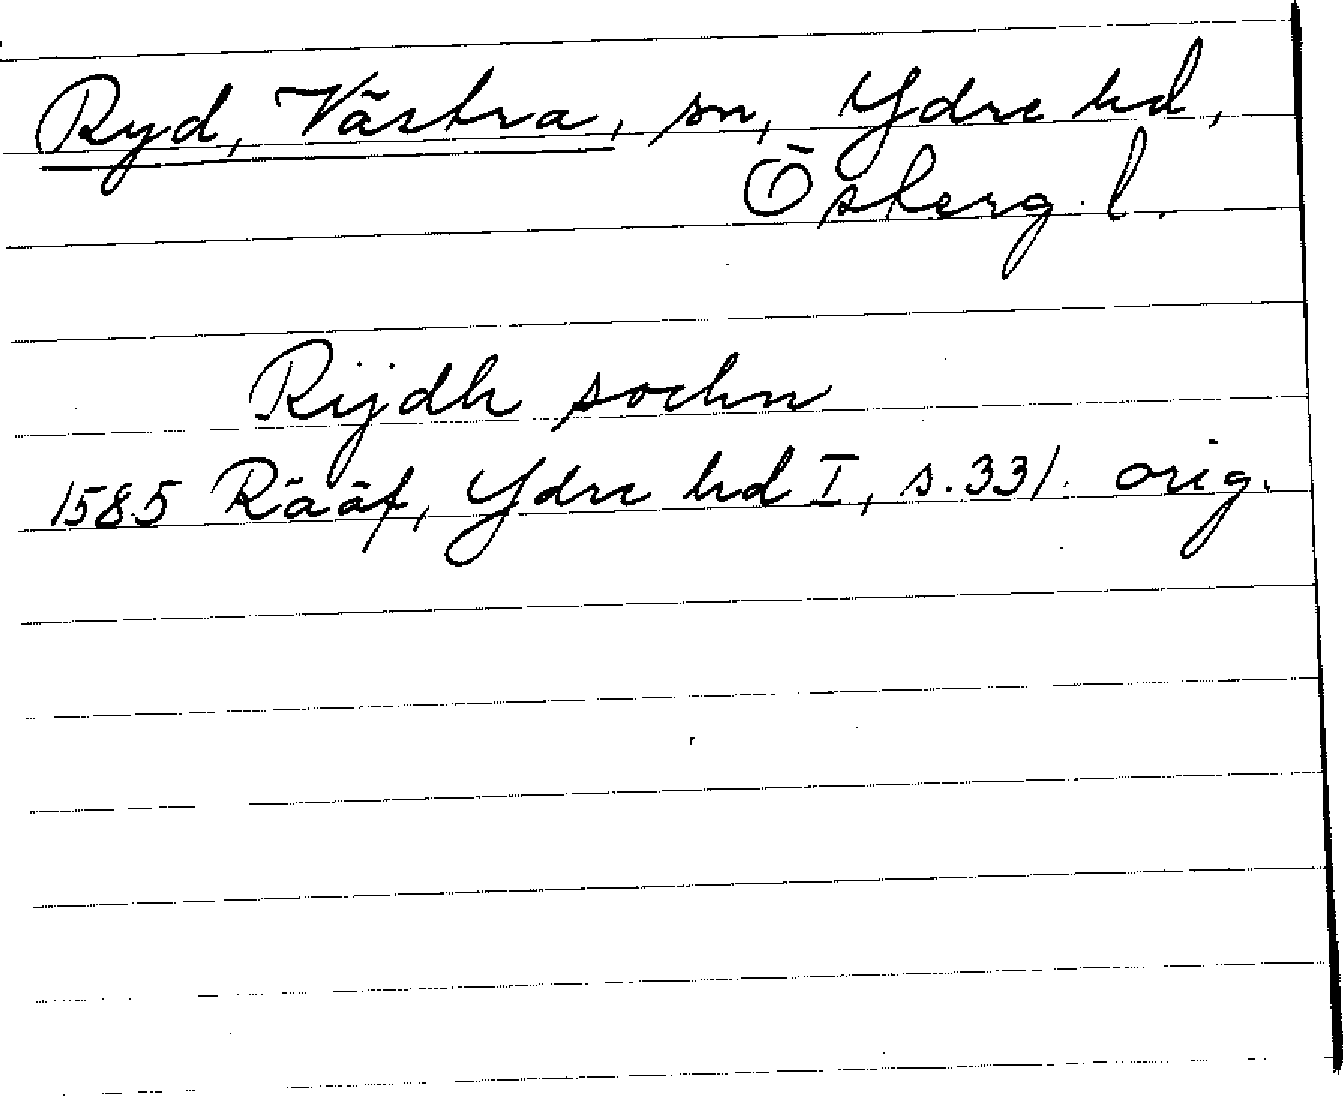 Ryd, Västra, sn, Ydre hd,
Österg. l.
Rijdh sochn
1585 Rääf, Ydre hd I, s. 331. orig.